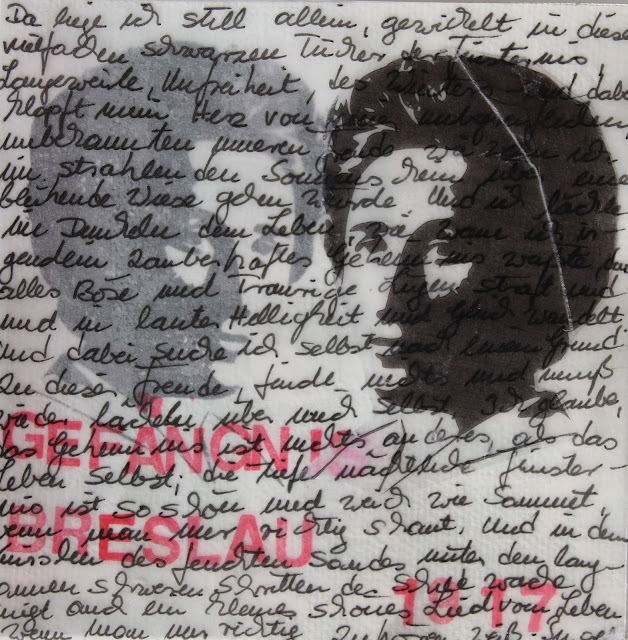 Da liege ich still allein, gewickelt in diese
vielfachen schwarzen Tücher der Finsternis,
Langeweile, Unfreiheit, des Winters – und dabei
klopft mein Herz von einer unbegreiflichen,
unbekannten inneren Freude, wie wenn ich
im strahlenden Sonnenschein über eine
blühende Wiese gehen würde. Und ich lächle
im Dunkeln dem Leben, wie wenn ich ir-
gendein zauberhaftes Geheimnis wüßte, das
alles Böse und Traurige Lügen straft und
und in lauter Helligkeit und Glück wandelt.
und dabei suche ich selbst nach einem Grund
zu dieser Freude, finde nichts und muß
wieder lächeln über mich selbst. Ich glaube,
GEFÄNGNIS
das Geheimnis ist nichts anderes, als das
Leben selbst; die tiefe nächtliche Finster-
nis ist so schön und weich wie Sammet,
wenn man nur richtig schaut. Und in dem
BRESLAU
Knirschen des feuchten Sandes unter den lang-
samen schweren Schritten der wache
1917
singt auch ein kleines schönes Lied vom Leben
wenn man nur richtig zu hören weiß